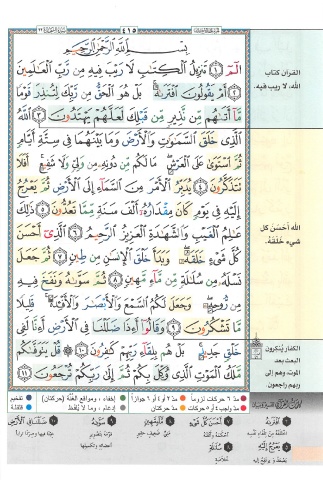 ٤١٥
بِسْمِ اللَّهِ الرَّحْمَٰنِ الرَّحِيمِ
الٓمٓ ١ تَنزِيلُ الْكِتَٰبِ لَا رَيْبَ فِيهِ مِن رَّبِّ الْعَٰلَمِينَ
٢ أَمْ يَقُولُونَ افْتَرَىٰهُ بَلْ هُوَ الْحَقُّ مِن رَّبِّكَ لِتُنذِرَ قَوْمًا
مَّآ أَتَىٰهُم مِّن نَّذِيرٍ مِّن قَبْلِكَ لَعَلَّهُمْ يَهْتَدُونَ ٣ اللَّهُ
الَّذِى خَلَقَ السَّمَٰوَٰتِ وَالْأَرْضَ وَمَا بَيْنَهُمَا فِى سِتَّةِ أَيَّامٍ
ثُمَّ اسْتَوَىٰ عَلَى الْعَرْشِ مَا لَكُم مِّن دُونِهِ مِن وَلِىٍّ وَلَا شَفِيعٍ أَفَلَا
تَتَذَكَّرُونَ ٤ يُدَبِّرُ الْأَمْرَ مِنَ السَّمَآءِ إِلَى الْأَرْضِ ثُمَّ يَعْرُجُ
إِلَيْهِ فِى يَوْمٍ كَانَ مِقْدَارُهُ أَلْفَ سَنَةٍ مِّمَّا تَعُدُّونَ ٥ ذَٰلِكَ
عَٰلِمُ الْغَيْبِ وَالشَّهَٰدَةِ الْعَزِيزُ الرَّحِيمُ ٦ الَّذِى أَحْسَنَ
كُلَّ شَىْءٍ خَلَقَهُ وَبَدَأَ خَلْقَ الْإِنسَٰنِ مِن طِينٍ ٧ ثُمَّ جَعَلَ
نَسْلَهُ مِن سُلَٰلَةٍ مِّن مَّآءٍ مَّهِينٍ ٨ ثُمَّ سَوَّىٰهُ وَنَفَخَ فِيهِ
مِن رُّوحِهِ وَجَعَلَ لَكُمُ السَّمْعَ وَالْأَبْصَٰرَ وَالْأَفْـِٔدَةَ قَلِيلًا
مَّا تَشْكُرُونَ ٩ وَقَالُوٓا أَءِذَا ضَلَلْنَا فِى الْأَرْضِ أَءِنَّا لَفِى
خَلْقٍ جَدِيدٍ بَلْ هُم بِلِقَآءِ رَبِّهِمْ كَٰفِرُونَ ١٠ قُلْ يَتَوَفَّىٰكُم
مَّلَكُ الْمَوْتِ الَّذِى وُكِّلَ بِكُمْ ثُمَّ إِلَىٰ رَبِّكُمْ تُرْجَعُونَ ١١
القرآن كتاب
الله، لا ريب فيه.
الله أحْسَنَ كل
شيءٍ خَلَقَهُ.
الكفار يُنكرون
البعث بعد
الموت، وهم إلى
ربهم راجعون
مدّ ٦ حركات لزوماً
مدّ ٢ أو ٤ أو ٦ جوازاً
إخفاء، ومواقع الغُنَّة (حركتان)
تفخيم
مدّ واجب ٤ أو ٥ حركات
مدّ حركتان
إدغام، وما لا يُلفَظ
قلقلة